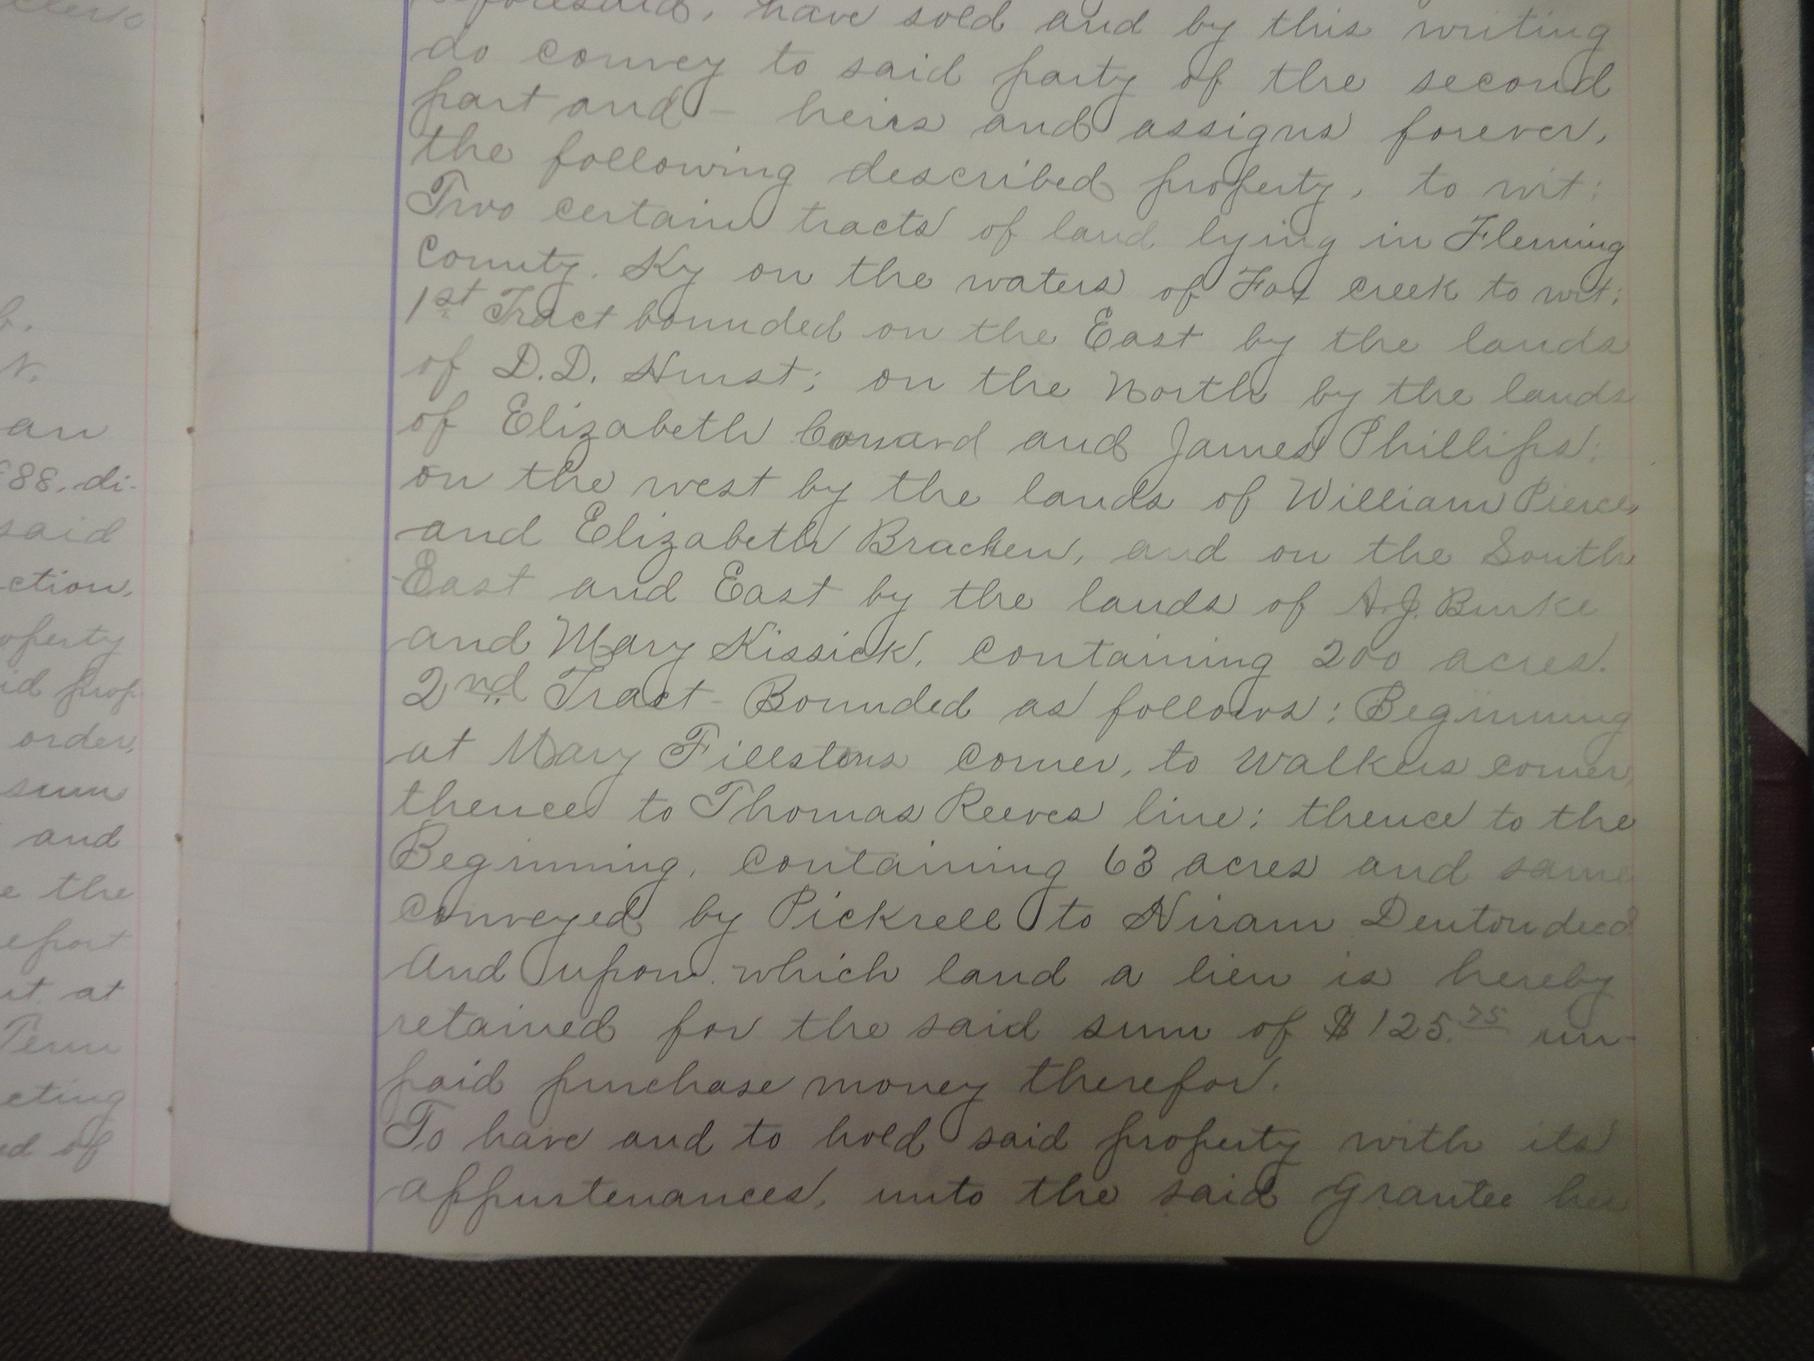 clerk
b.
N.
an
888, di-
said
ction,
operty
id prop
order,
sum
and
e the
eport
ut at
Term
eting
ed of
aforesaid, have sold and by this writing
do convey to said party of the second
part and - heirs and assigns forever,
the following described property, to wit:
Two certain tracts of land lying in Fleming
County. Ky on the waters of Fox creek to wit:
1st Tract bounded on the East by the lands
of D.D. Hurst; on the North by the lands
of Elizabeth and James Phillips;
on the west by the lands of William Pierce,
and Elizabeth Bracken, and on the South
East and East by the lands of A.J. Burke
and Mary Kissick, containing 200 acres.
2nd Tract - Bounded as follows: Beginning
at Mary corner, to Walkers corner,
thence to Thomas Reeves line; thence to the
Beginning, containing 63 acres and same
conveyed by Pickrell to Hiram Denton decd
And upon which land a lien is hereby
retained for the said sum of $125.75 un-
paid purchase money therefor.
To have and to hold said property with its
appurtenances, unto the said Grantee her